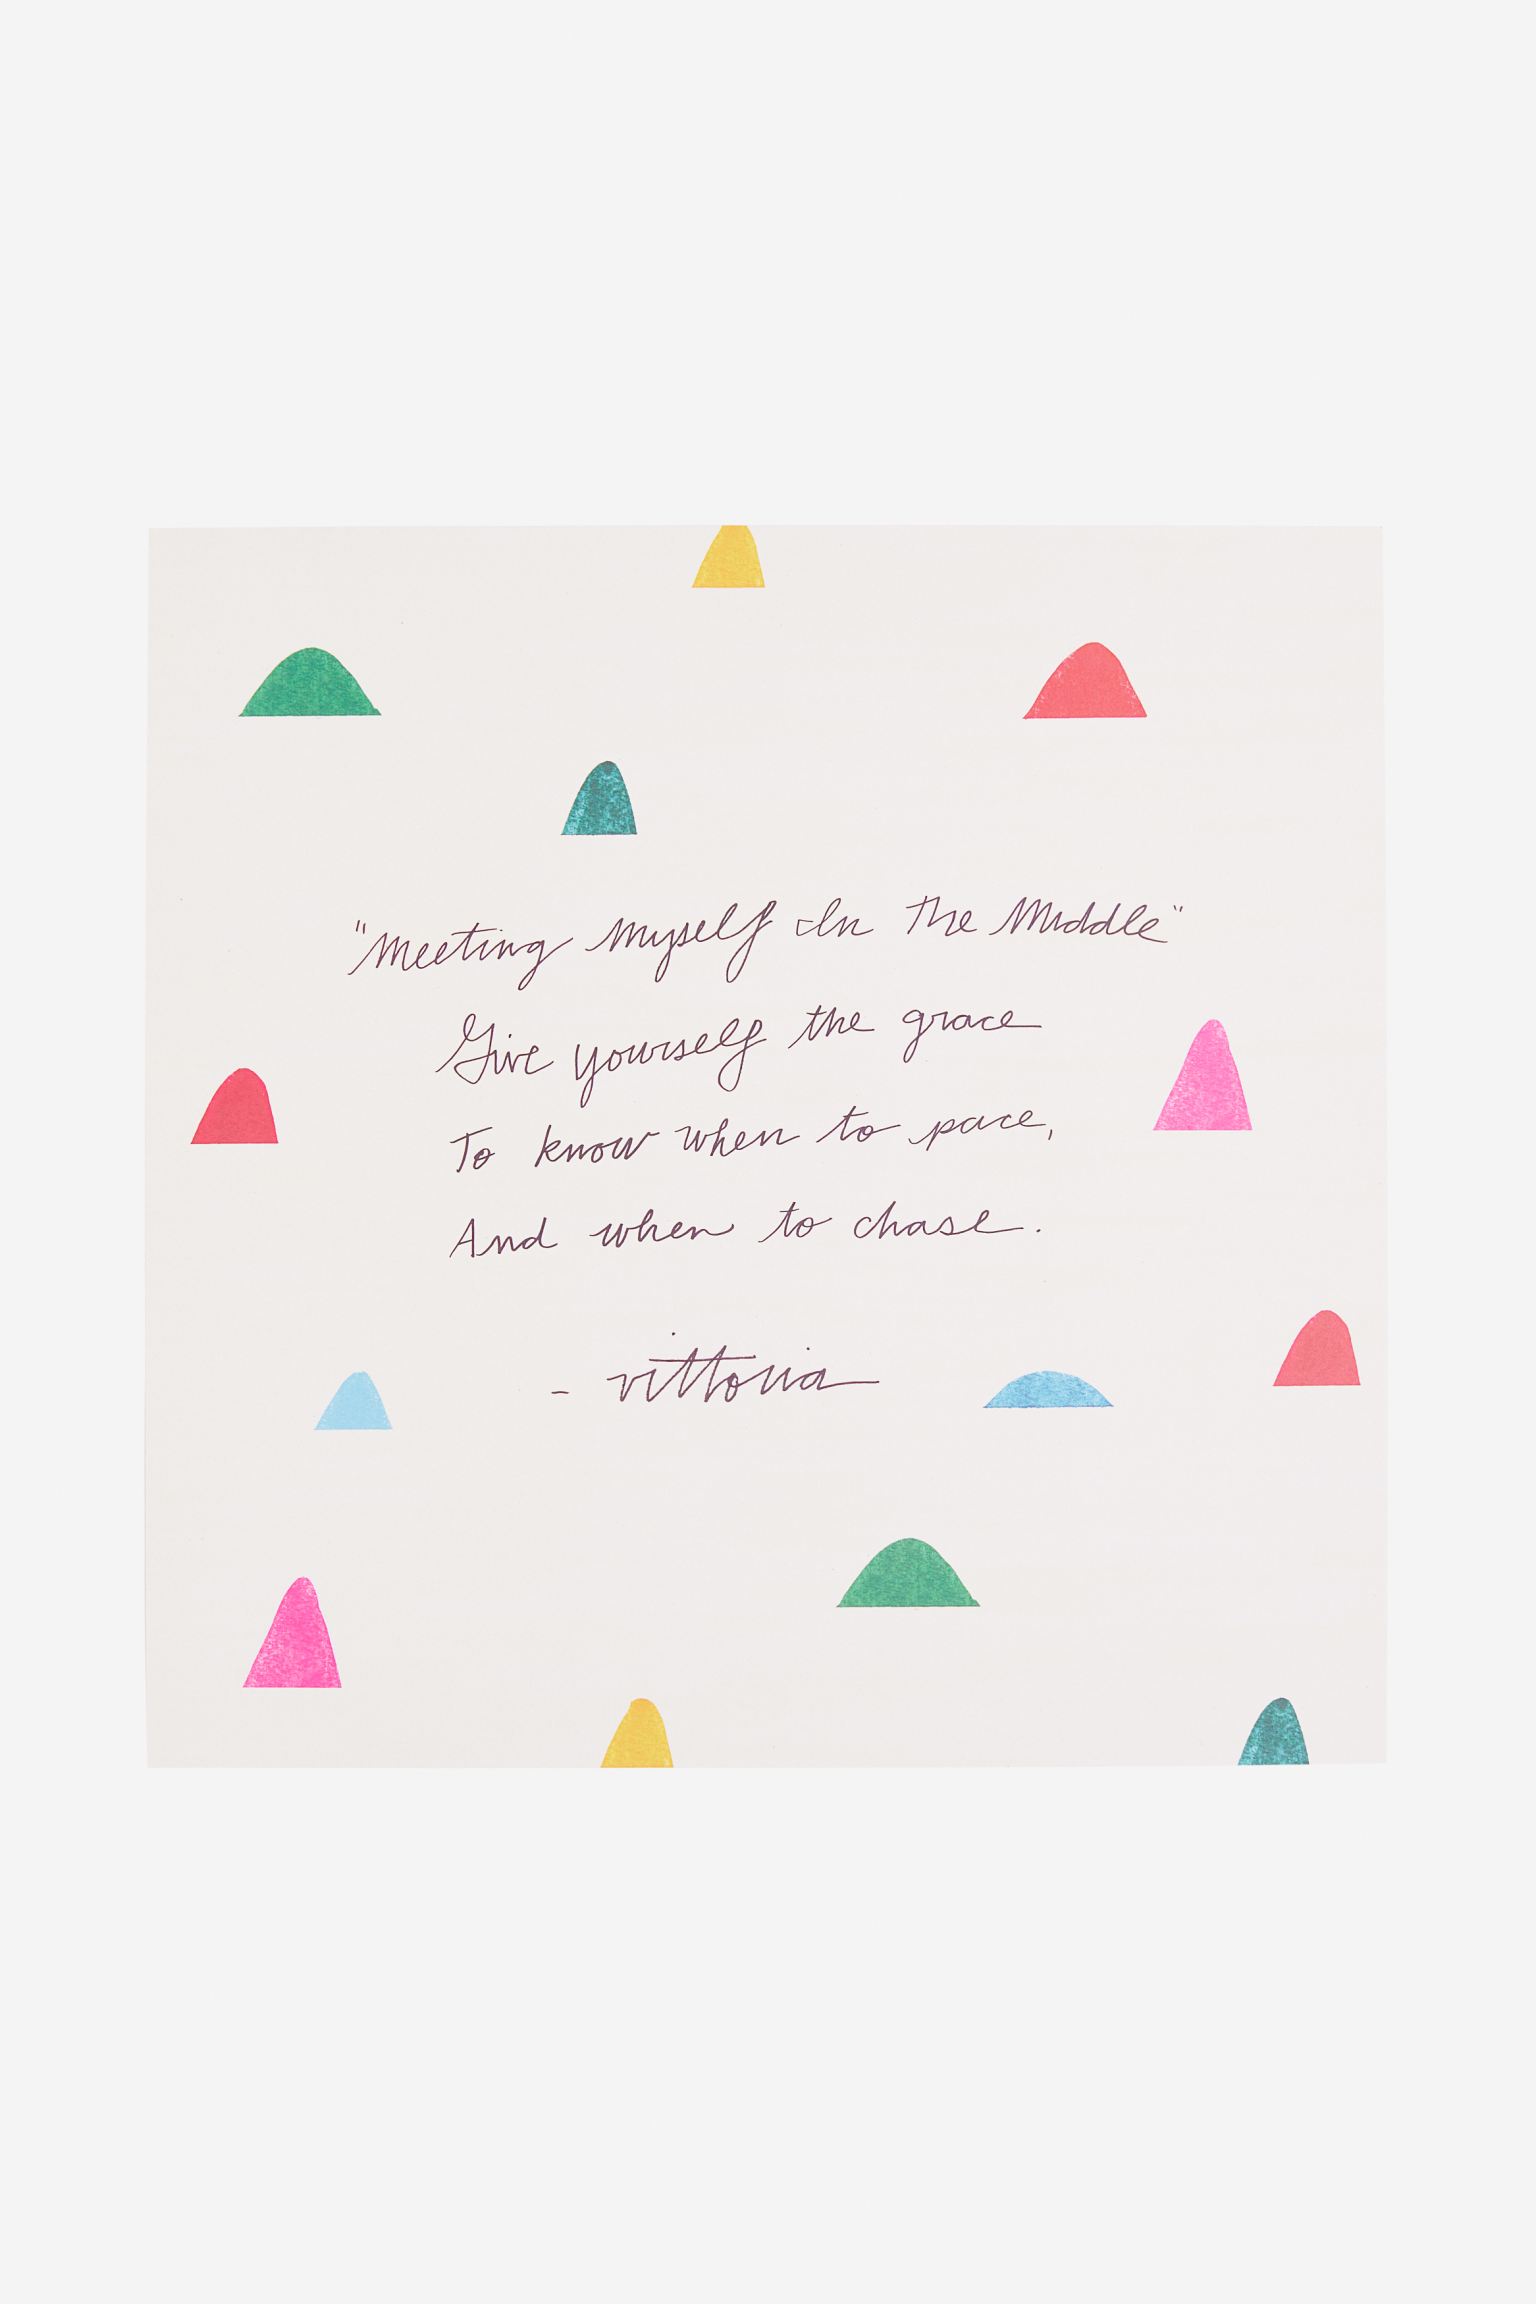 "Meeting Myself In The Middle"
Give yourself the grace
To know when to pace,
And when to chase.
- vittoria